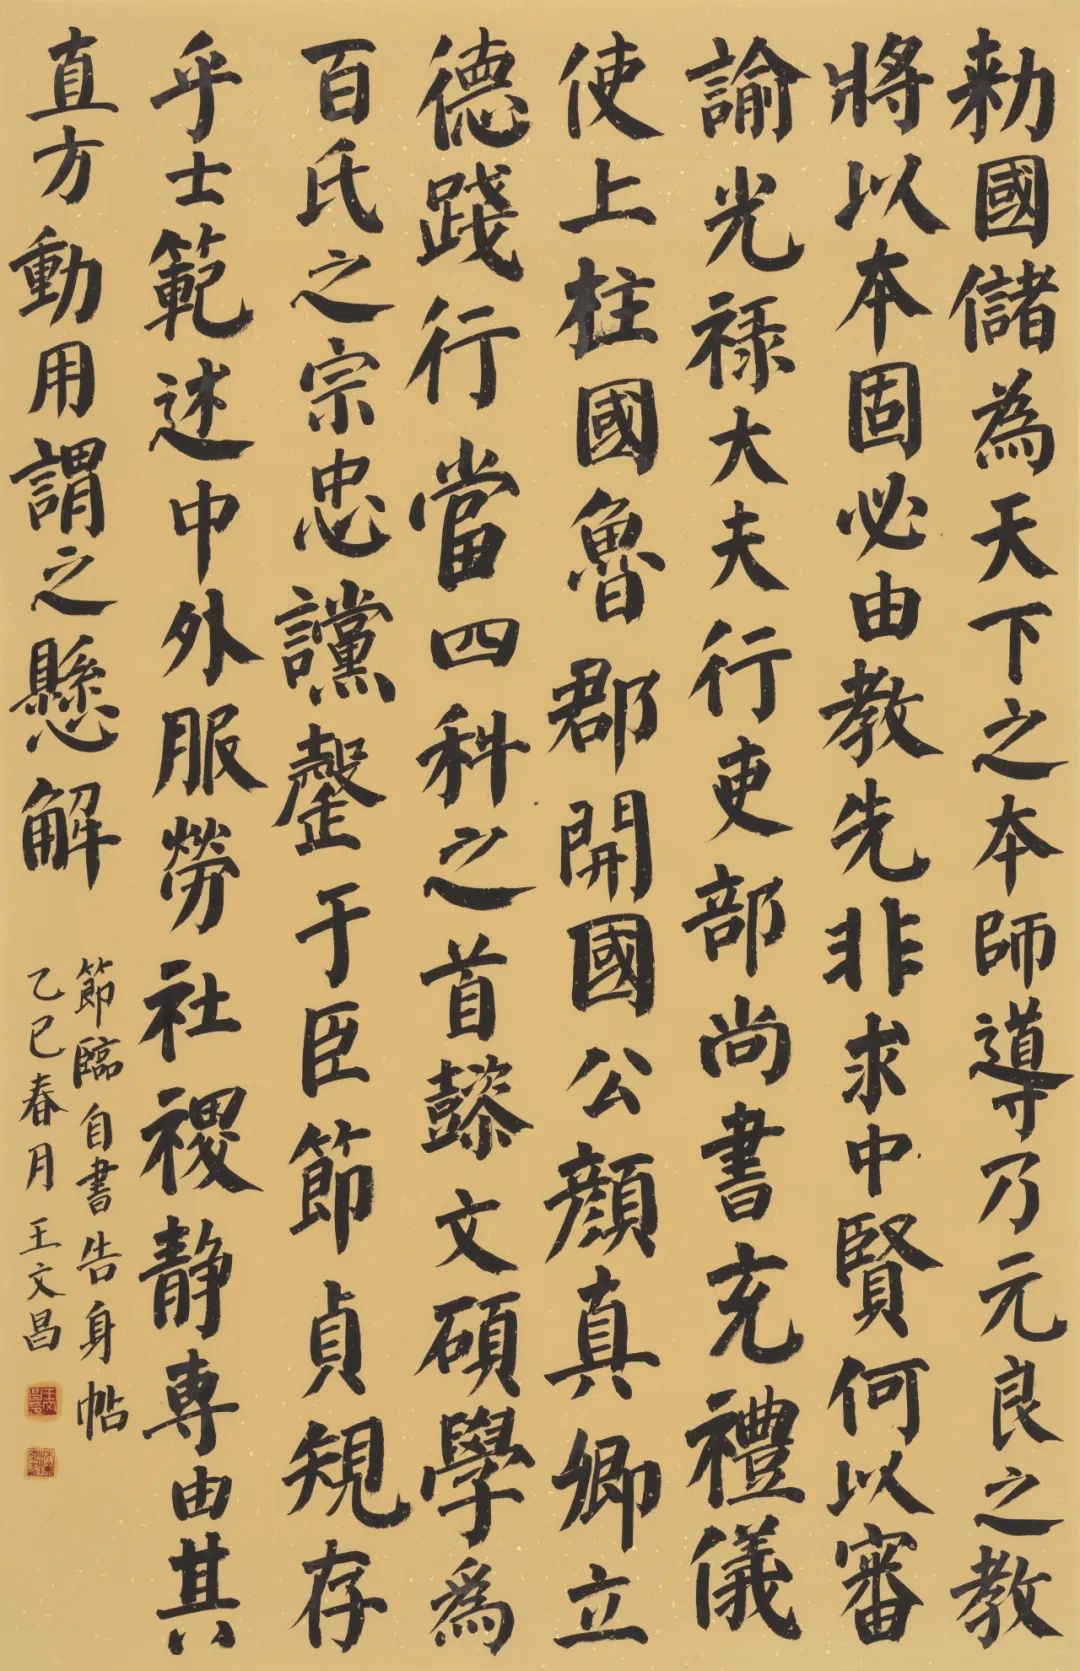 勑國儲為天下之本師導乃元良之教
將以本固必由教先非求中賢何以審
諭光祿大夫行吏部尚書充禮儀
使上柱國魯郡開國公顏真卿立
德踐行當四科之首懿文碩學為
百氏之宗忠讜罄于臣節貞規存
乎士範述中外服勞社稷靜專由其
直方動用謂之懸解
節臨自書告身帖
乙巳春月王文昌